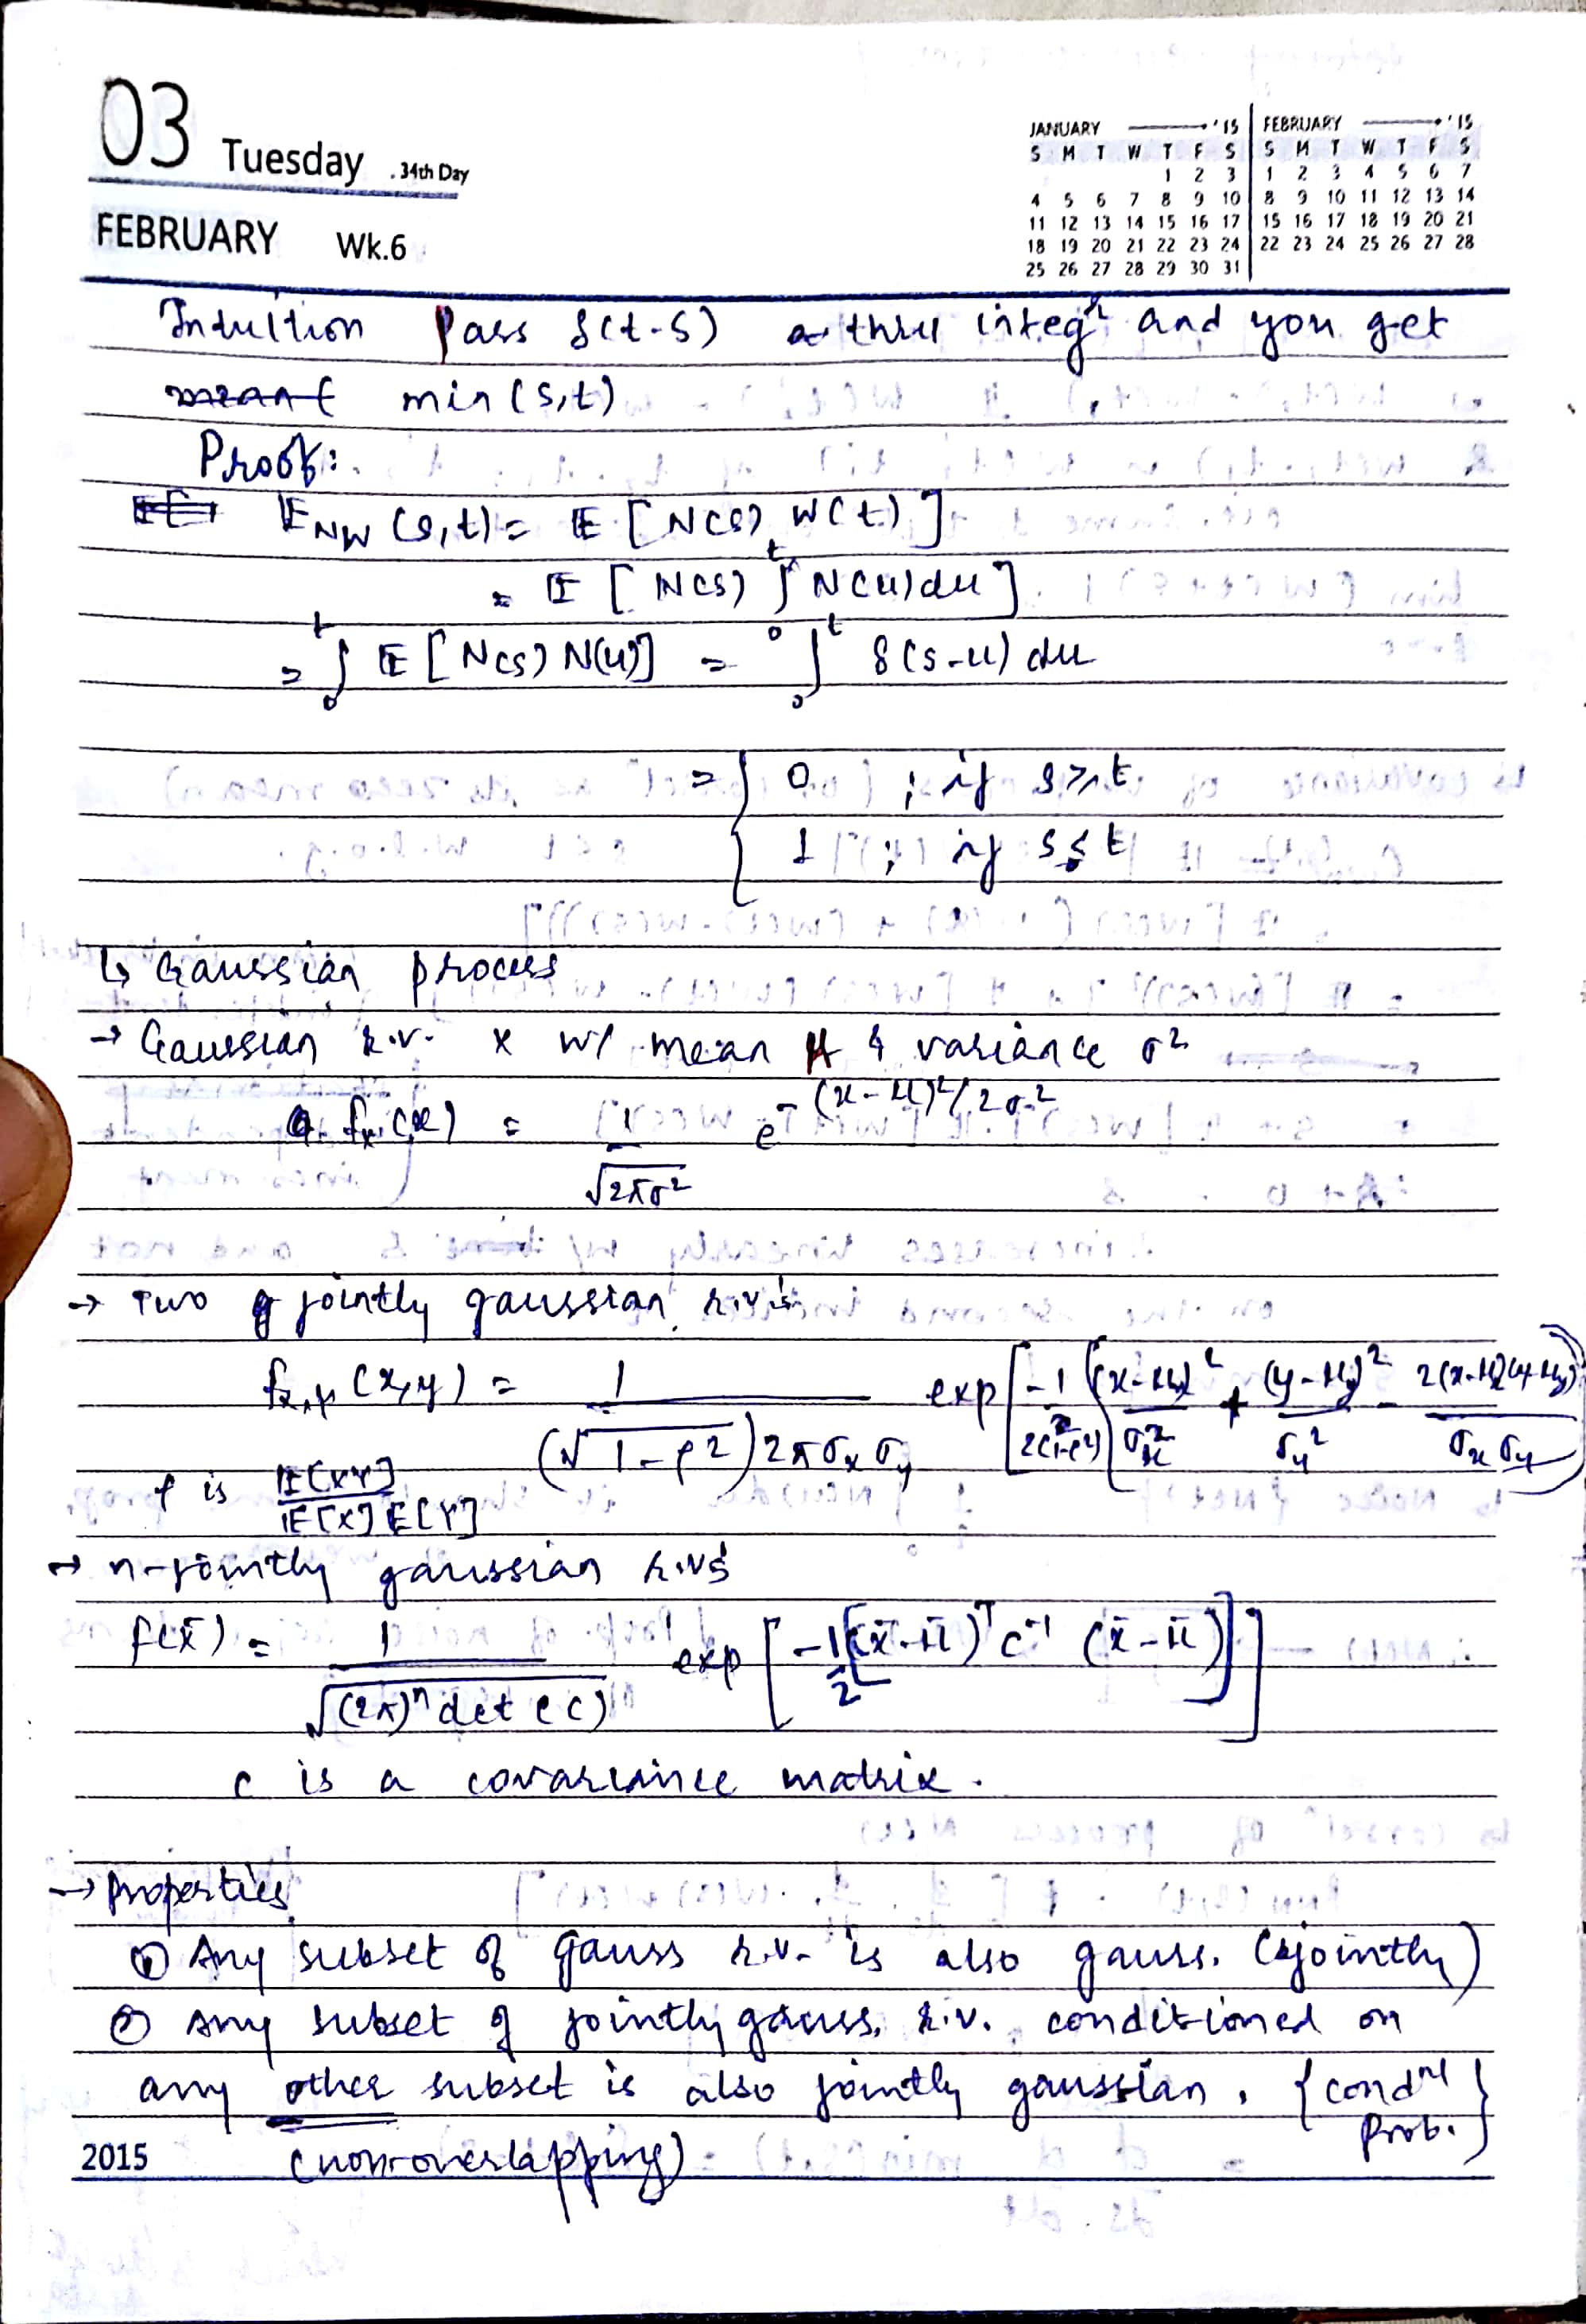 03 Tuesday . 34th Day
FEBRUARY Wk.6
JANUARY '15 FEBRUARY '15
S M T W T F S S M T W T F S
1 2 3 1 2 3 4 5 6 7
4 5 6 7 8 9 10 8 9 10 11 12 13 14
11 12 13 14 15 16 17 15 16 17 18 19 20 21
18 19 20 21 22 23 24 22 23 24 25 26 27 28
25 26 27 28 29 30 31
Induition Pass δ(t-s) thru integʳ and you get
min(s,t)
Proof:
𝔼_NW (s,t) = 𝔼 [N(s) W(t)]
= 𝔼 [N(s) ∫₀ᵗ N(u)du]
= ∫₀ᵗ 𝔼 [N(s) N(u)] = ∫₀ᵗ δ(s-u) du
= { 0 ; if s ≥ t
1 ; if s ≤ t
↳ Gaussian process
→ Gaussian r.v. x w/ mean μ & variance σ²
f_x(x) = 1/√(2πσ²) e^-(x-μ)²/2σ²
→ Two jointly gaussian r.v.s
f_x,y (x,y) = 1/((√1-ρ²) 2πσ_xσ_y) exp[-1/2(1-ρ²) ((x-μ_x)²/σ_x² + (y-μ_y)²/σ_y² - 2(x-μ_x)(y-μ_y)/σ_xσ_y)
ρ is 𝔼[XY]/𝔼[X]𝔼[Y]
→ n-jointly gaussian r.v.s
f(x̄) = 1/√((2π)ⁿ det(C)) exp[-1/2[(x̄-μ̄)ᵀ C⁻¹ (x̄-μ̄)]]
C is a covariance matrix.
→ Properties
① Any subset of gauss r.v. is also gauss. (jointly)
② Any subset of jointly gauss. r.v. conditioned on
any other subset is also jointly gaussian. {condⁿˡ prob.}
2015 (non-overlapping)